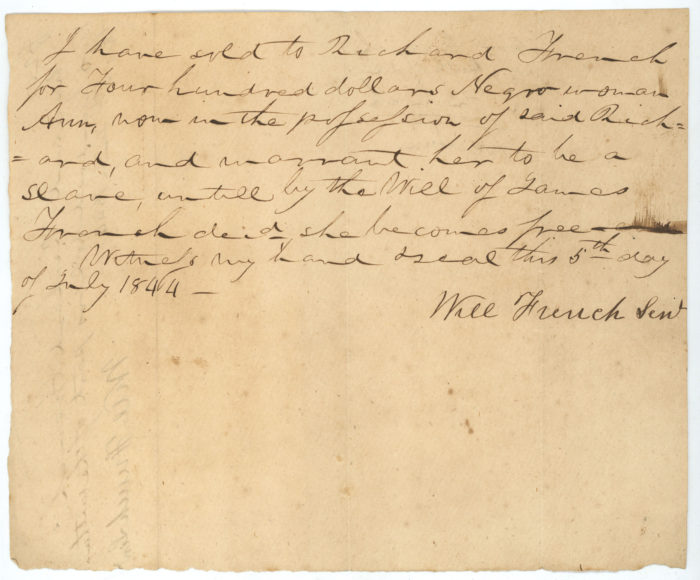 I have sold to Richard French
for Four hundred dollars Negro woman
Ann, now in the possession of said Rich=
=ard, and warrant her to be a
slave, untill by the Will of James
French decid, she becomes free
Witness my hand & seal this 5th day
of July 1844 —
Will French Senr